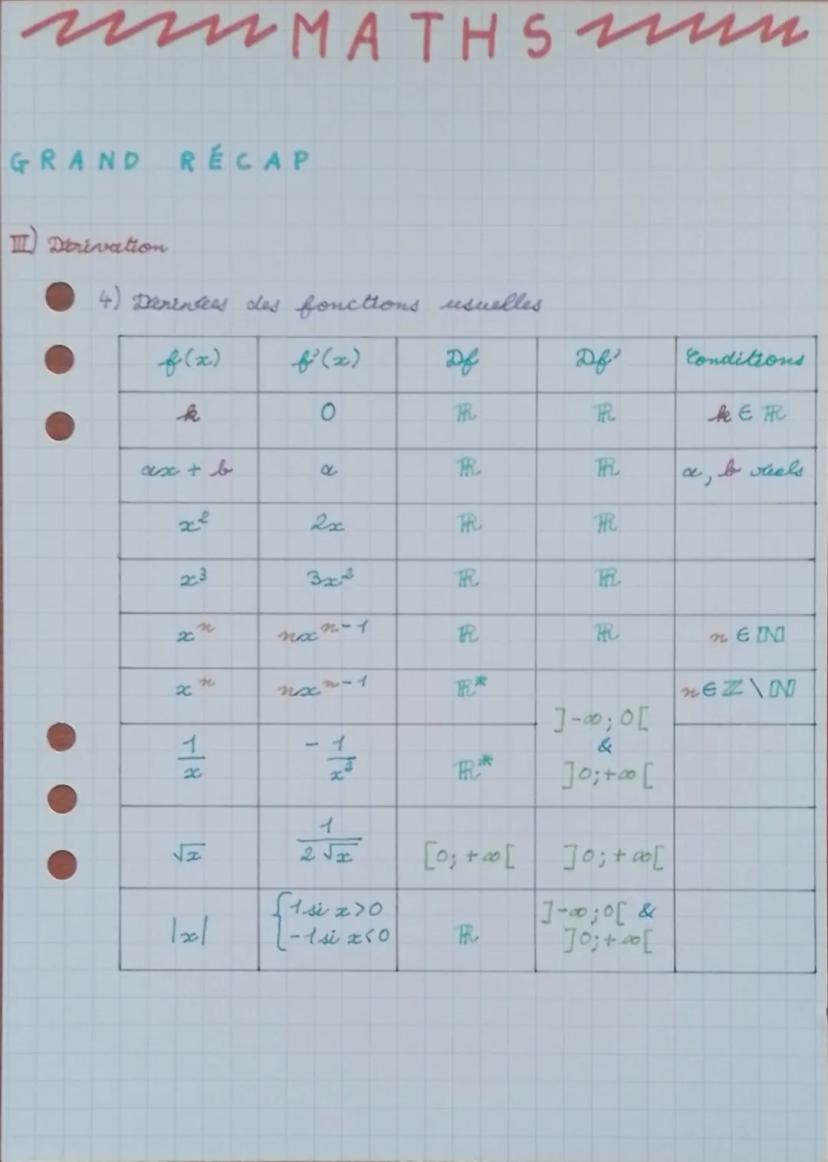 MATHS
GRAND RÉCAP
III) Dérivation
4) Dérivées des fonctions usuelles
f(x) f'(x) Df Df' Conditions
k 0 ℝ ℝ k ∈ ℝ
ax + b a ℝ ℝ a, b réels
x² 2x ℝ ℝ
x³ 3x² ℝ ℝ
xⁿ nxⁿ⁻¹ ℝ ℝ n ∈ ℕ
xⁿ nxⁿ⁻¹ ℝ* ]-∞; 0[ & ]0; +∞[ n ∈ ℤ \ ℕ
1/x -1/x² ℝ*
√x 1/(2√x) [0; +∞[ ]0; +∞[
|x| { 1 si x > 0 ℝ ]-∞; 0[ &
-1 si x < 0 ]0; +∞[